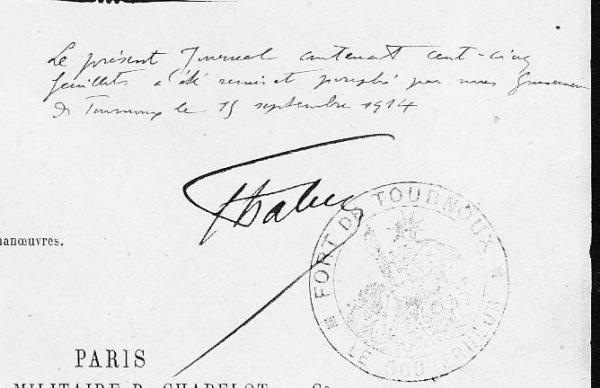 Le présent Journal contenant cent-cinq
feuillets a été remis et paraphé par nous Gouverneur
de Tournoux le 15 septembre 1914
FORT DE TOURNOUX
LE
manœuvres.
PARIS
MILITAIRE R. CHAPELOT